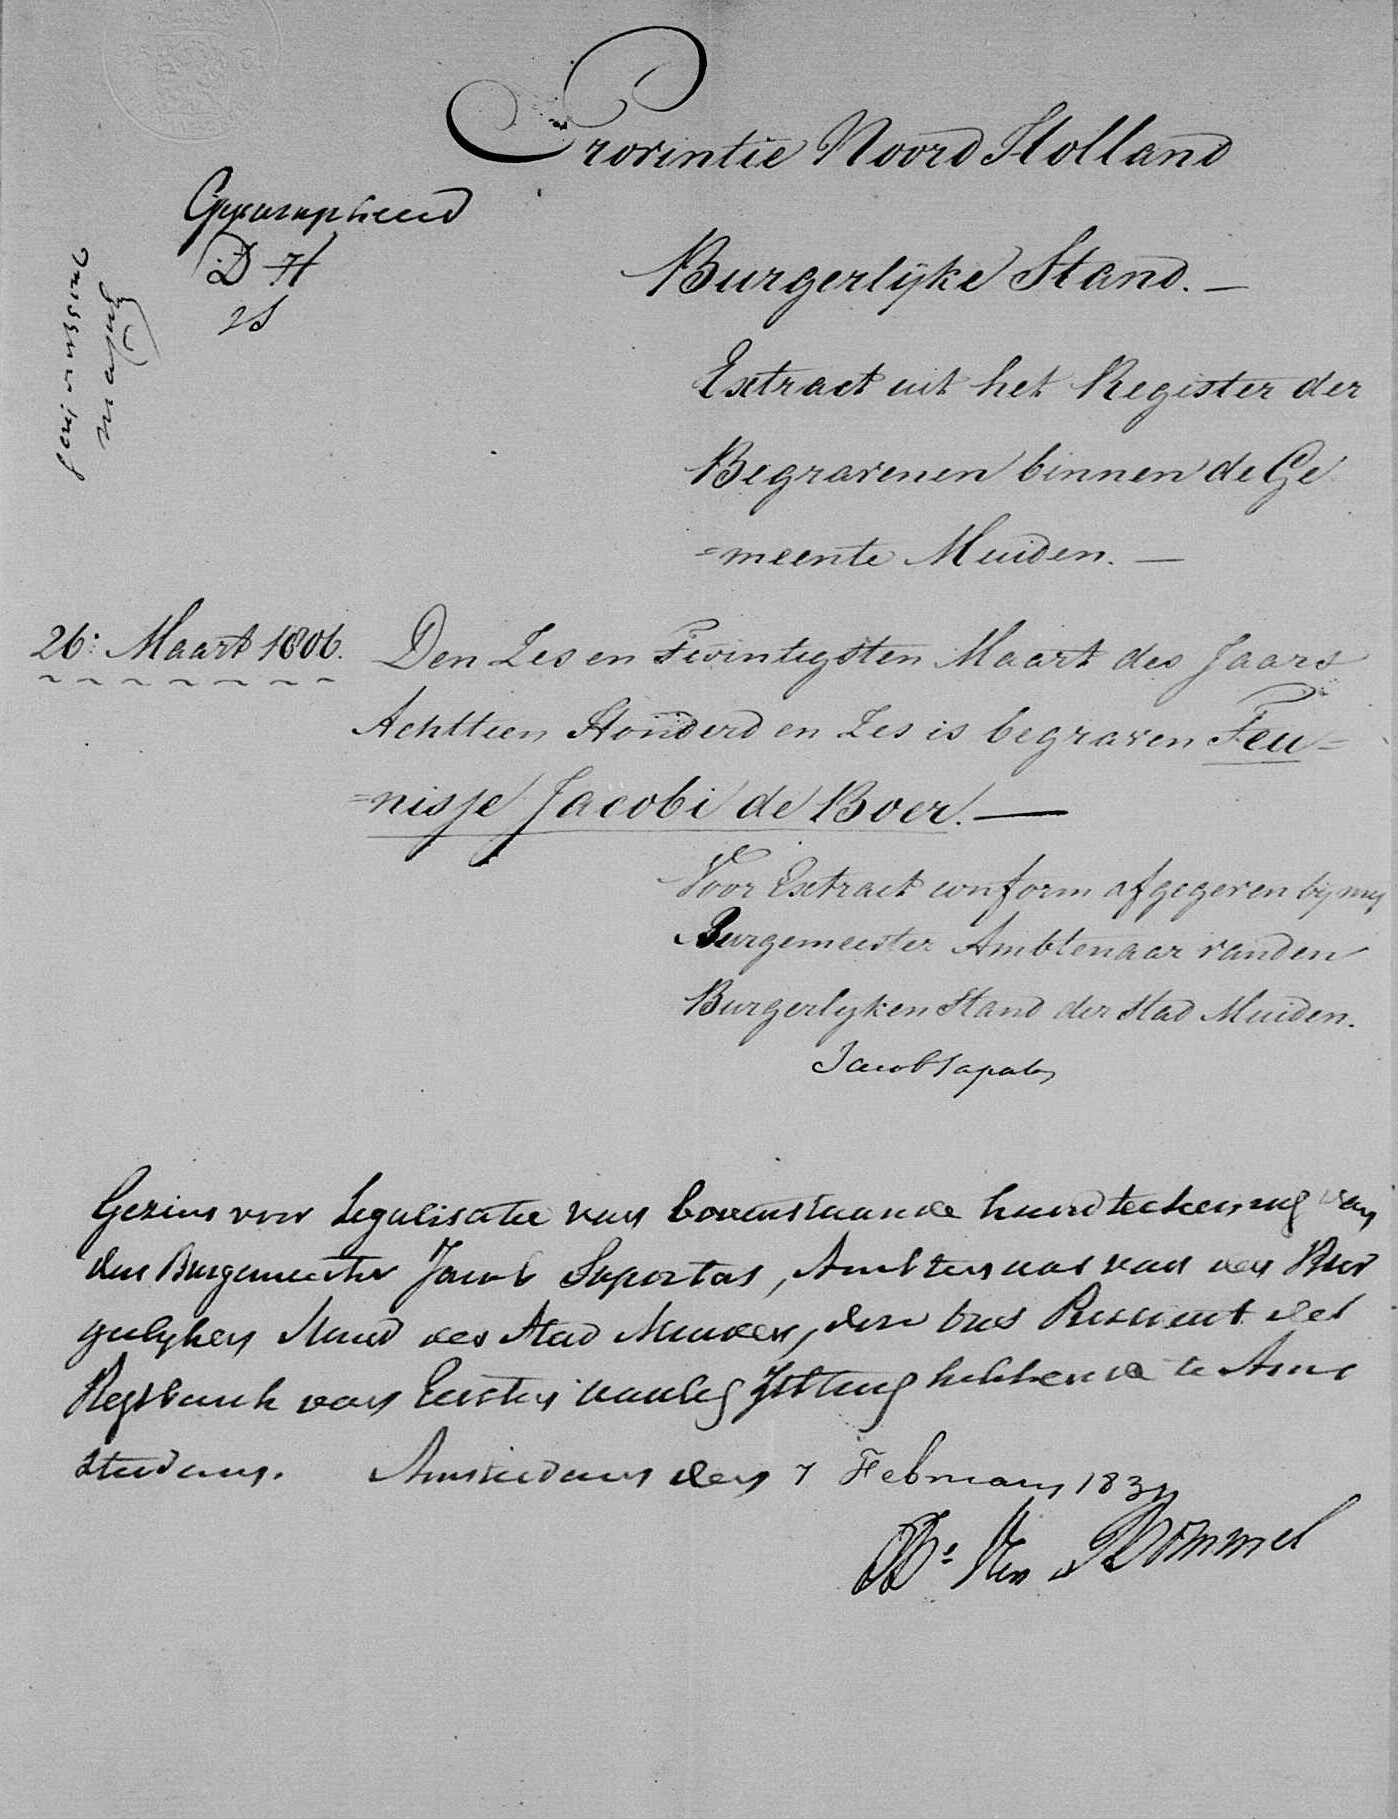 Provintie Noord Holland
Geparapheerd
D H
Burgerlijke Stand. —
Extract uit het Register der
Begravenen binnen de Ge
=meente Muiden. —
26: Maart 1806.
Den Zes en Twintigsten Maart des Jaars
Achttien Honderd en Zes is begraven Teu=
=nisje Jacobi de Boer. —
Voor Extract conform afgegeven bij mij
Burgemeester Ambtenaar van den
Burgerlyken Stand der Stad Muiden.
Jacob Saportas
Gezien voor Legalisatie van bovenstaande handteekening van
den Burgemeester Jacob Saportas, Ambtenaar van den Bur
gerlyken Stand der Stad Muiden, door ons President der
Regtbank van Eersten aanleg Zitting hebbende te Ams
terdam. Amsterdam den 7 February 183
Bommel